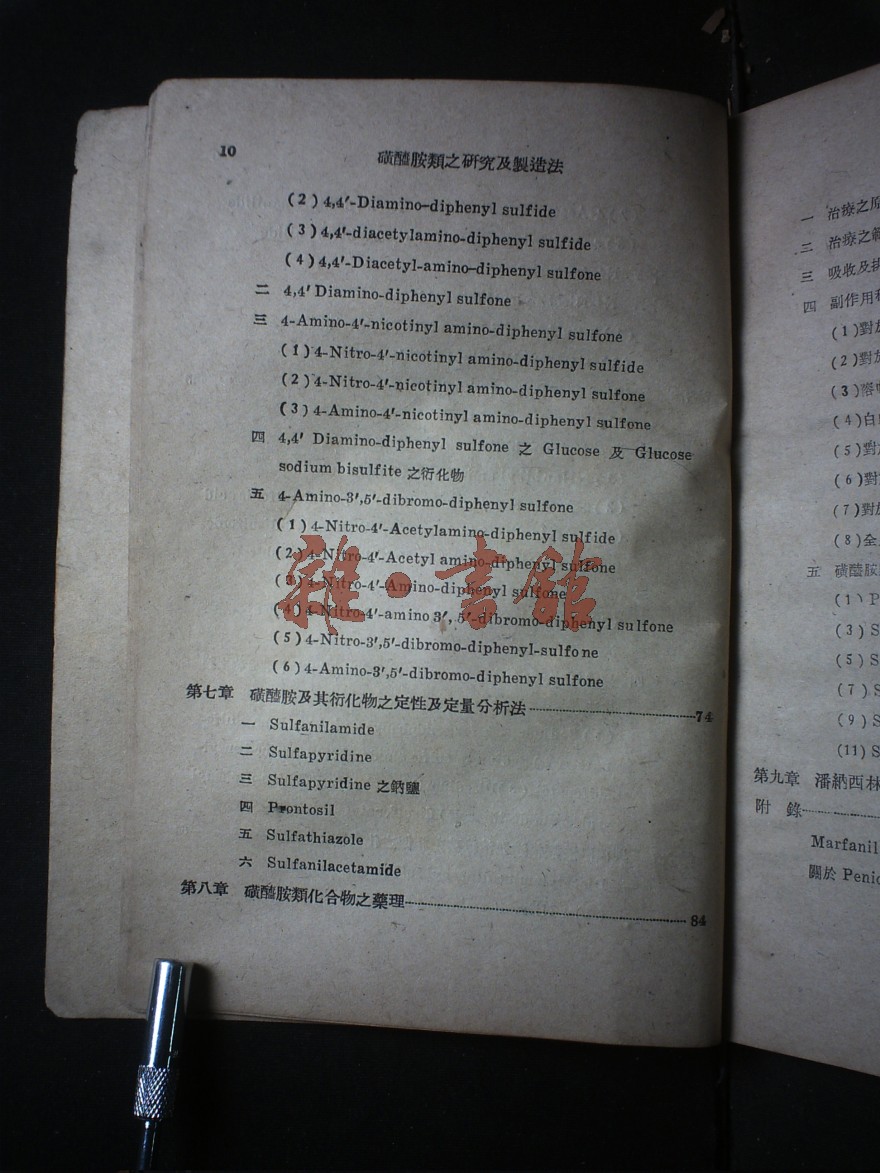 10
磺醯胺類之研究及製造法
(2) 4,4′-Diamino-diphenyl sulfide
(3) 4,4′-diacetylamino-diphenyl sulfide
(4) 4,4′-Diacetyl-amino-diphenyl sulfone
二 4,4′ Diamino-diphenyl sulfone
三 4-Amino-4′-nicotinyl amino-diphenyl sulfone
(1) 4-Nitro-4′-nicotinyl amino-diphenyl sulfide
(2) 4-Nitro-4′-nicotinyl amino-diphenyl sulfone
(3) 4-Amino-4′-nicotinyl amino-diphenyl sulfone
四 4,4′ Diamino-diphenyl sulfone 之 Glucose 及 Glucose
sodium bisulfite 之衍化物
五 4-Amino-3′,5′-dibromo-diphenyl sulfone
(1) 4-Nitro-4′-Acetylamino-diphenyl sulfide
(2) 4-Nitro-4′-Acetyl amino-diphenyl sulfone
(3) 4-Nitro-4′-Amino-diphenyl sulfone
(4) 4-Nitro-4′-amino 3′, 5′-dibromo-diphenyl sulfone
(5) 4-Nitro-3′,5′-dibromo-diphenyl-sulfone
(6) 4-Amino-3′,5′-dibromo-diphenyl sulfone
第七章 磺醯胺及其衍化物之定性及定量分析法 74
一 Sulfanilamide
二 Sulfapyridine
三 Sulfapyridine 之鈉鹽
四 Prontosil
五 Sulfathiazole
六 Sulfanilacetamide
第八章 磺醯胺類化合物之藥理 84
雜·書館
一 治療之原
二 治療之範
三 吸收及排
四 副作用和
(1) 對於
(2) 對於
(3) 嗜
(4) 白
(5) 對於
(6) 對
(7) 對於
(8) 全
五 磺醯胺
(1) P
(3) S
(5) S
(7) S
(9) S
(11) S
第九章 潘納西林
附 錄
Marfanil
關於 Penic